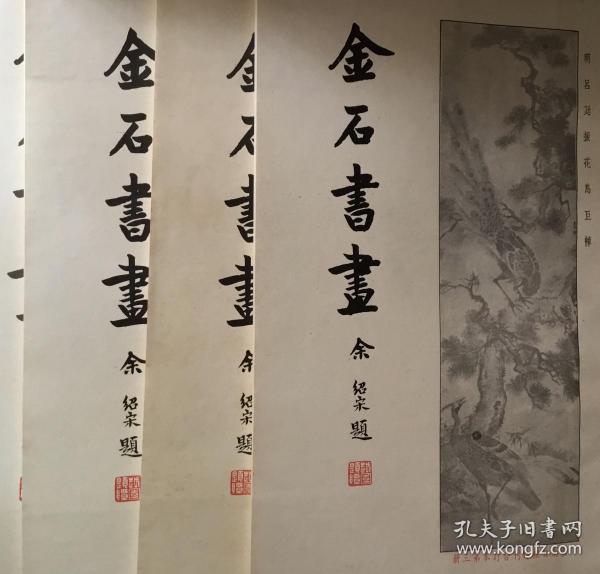 金石書畫
余紹宋題
金石書畫
余紹宋題
金石書畫
余紹宋題
明呂廷振花鳥巨幛
孔夫子旧书网
www.kongfz.com